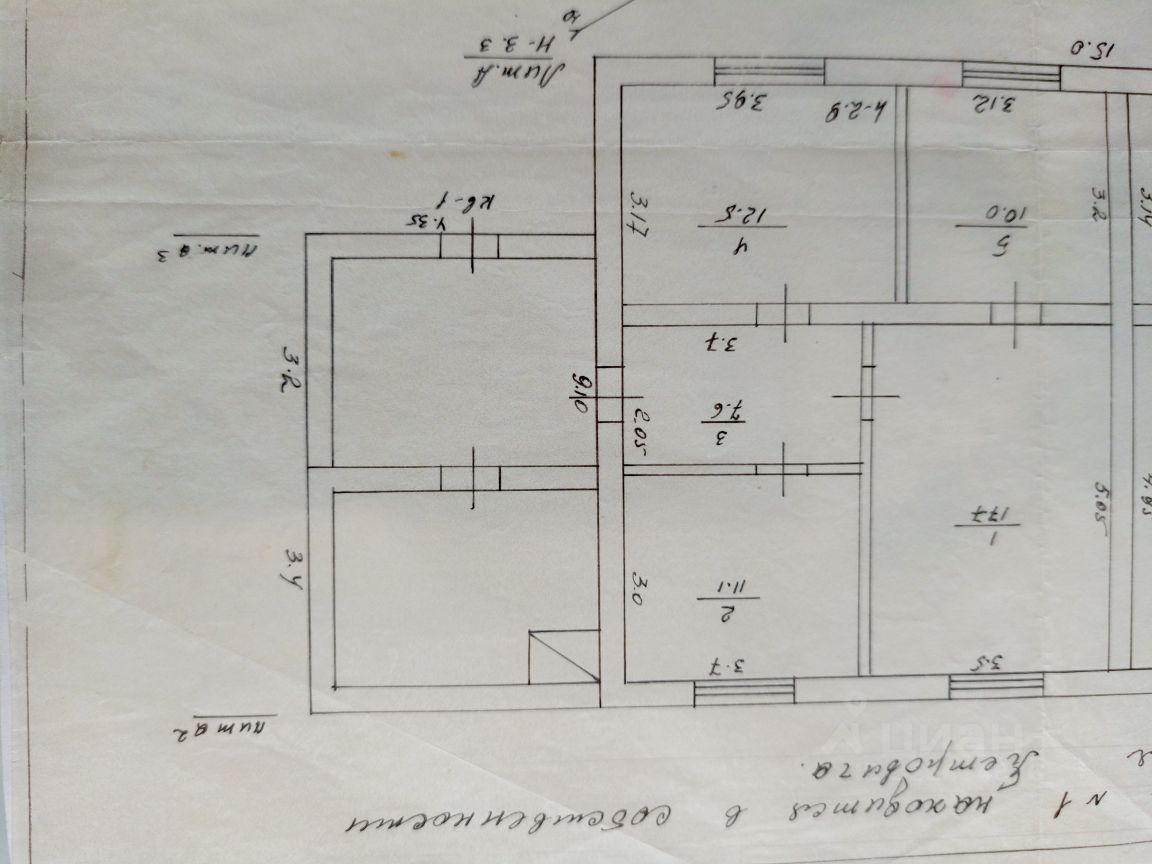 №1 находится в собственности
Петровича.
лит а2
3.5
3.7
1
17.7
2
11.1
3.0
5.05
3.4
3
7.6
2.05
9.10
3.7
3.2
5
10.0
4
12.5
3.2
3.14
3.17
лит.а3
4.35
кв-1
3.12
h-2.9
3.95
15.0
Лит.А
H-3.3
циан